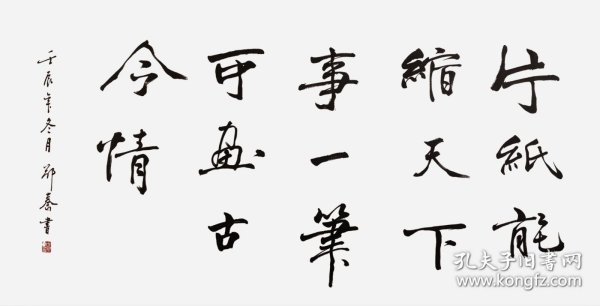 片紙能
縮天下
事一筆
可畫古
今情
壬辰年冬月鄧泰書
孔夫子旧书网
www.kongfz.com